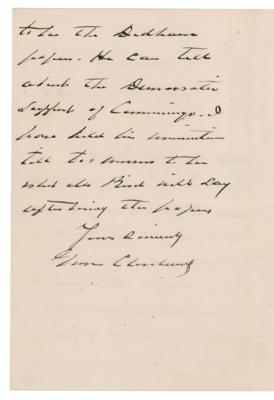 to be the Dedham
papers. He can tell
about the Democratic
support of Cummings. I
have held his nomination
till to-morrow to see
what Mr Bird will say
after seeing the papers
Yours sincerely
Grover Cleveland